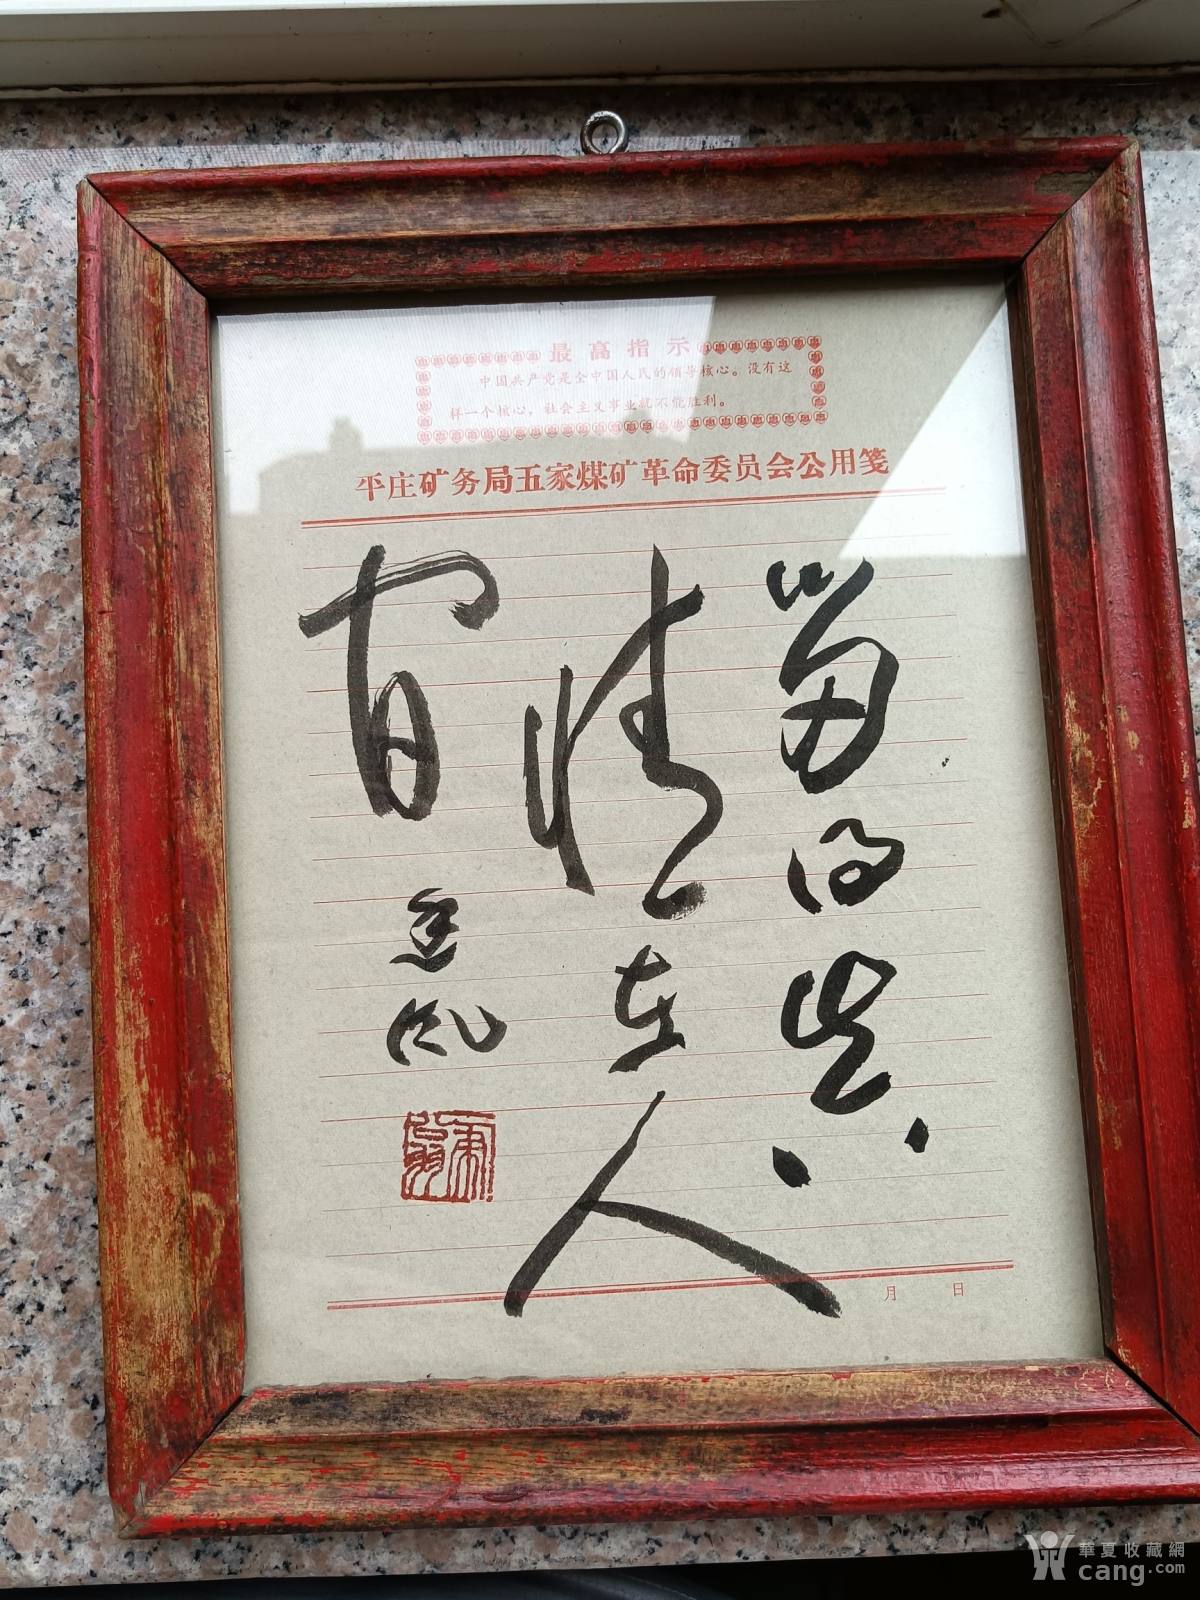 最高指示
中国共产党是全中国人民的领导核心。没有这
样一个核心，社会主义事业就不能胜利。
平庄矿务局五家煤矿革命委员会公用笺
留得真
情在人
间
月 日
華夏收藏網
cang.com